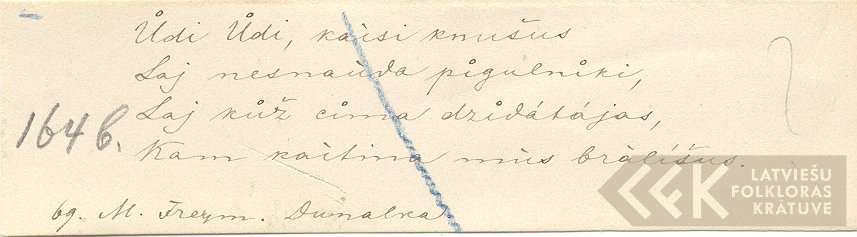 Ůdi Ůdi, kaisi knušus
Laj nesnauda pigulniki,
Laj kůž cima dzidátájas,
Kam kaitina mūs brālišus.
164 b.
69. M. Freym. Dunalka
LATVIEŠU
FOLKLORAS
KRĀTUVE